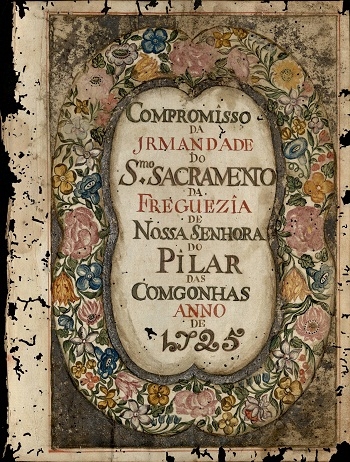 COMPROMISSO
DA
JRMANDADE
DO
Smo. SACRAMENTO
DA
FREGUEZIA
DE
NOSSA SENHORA
DO
PILAR
DAS
COMGONHAS
ANNO
DE
1725